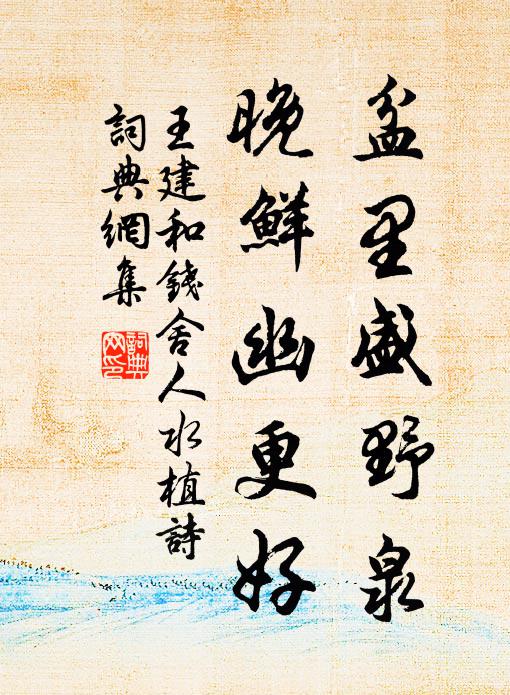 盆里盛野泉
晚鮮幽更好
王建和錢舍人水植詩
詞典網集
詞典
网印